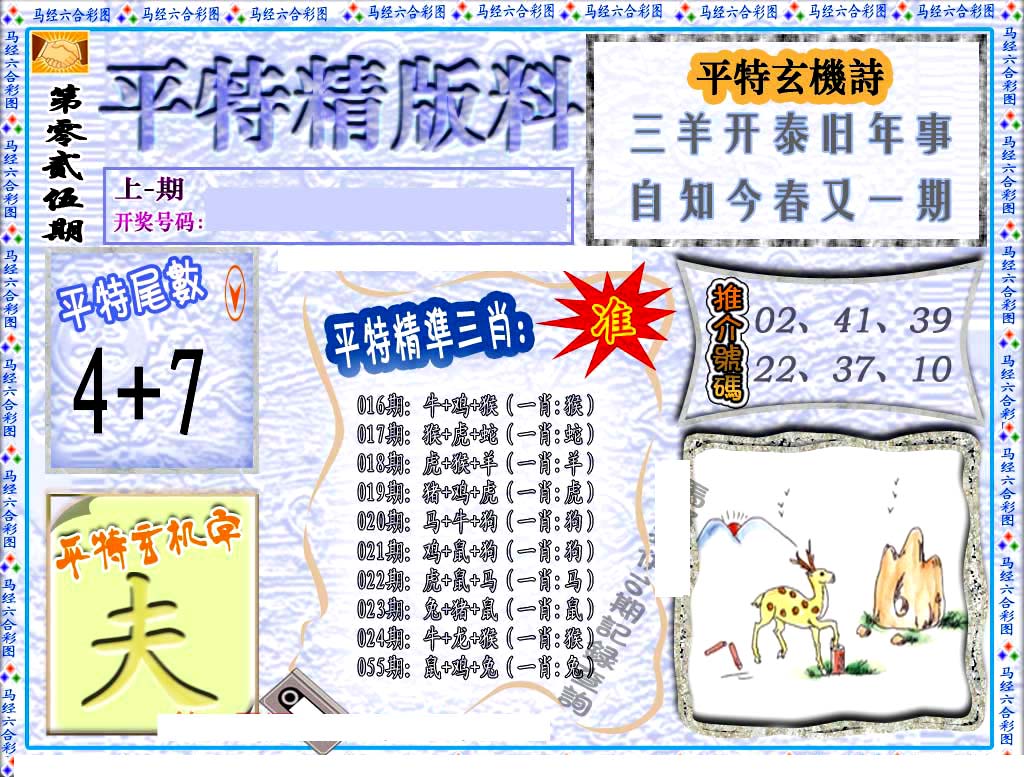 马经六合彩图 马经六合彩图 马经六合彩图 马经六合彩图 马经六合彩图 马经六合彩图 马经六合彩图 马经六合彩图 马经六合彩图
第零贰伍期
平特精版料
上-期
开奖号码:
平特玄機詩
三羊开泰旧年事
自知今春又一期
平特尾數
4+7
平特精準三肖:
准
016期: 牛+鸡+猴(一肖:猴)
017期: 猴+虎+蛇(一肖:蛇)
018期: 虎+猴+羊(一肖:羊)
019期: 猪+鸡+虎(一肖:虎)
020期: 马+牛+狗(一肖:狗)
021期: 鸡+鼠+狗(一肖:狗)
022期: 虎+鼠+马(一肖:马)
023期: 兔+猪+鼠(一肖:鼠)
024期: 牛+龙+猴(一肖:猴)
055期: 鼠+鸡+兔(一肖:兔)
期記録查詢
推介號碼
02、41、39
22、37、10
平特玄机字
夫
马经六合彩图
马经六合彩图
马经六合彩图
马经六合彩图
马经六合彩图
马经六合彩图
马经六合彩图
马经六合彩图
马经六合彩图
马经六合彩图
马经六合彩图
马经六合彩图
马经六合彩图
马经六合彩图